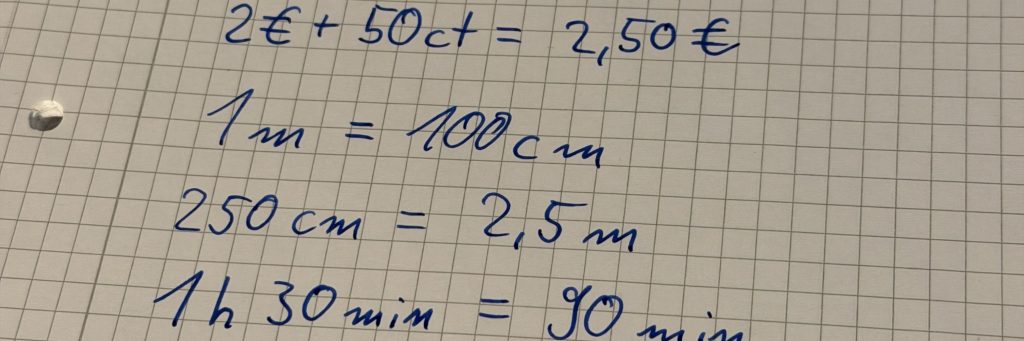 2€ + 50ct = 2,50€
1m = 100cm
250cm = 2,5m
1h 30min = 90 min